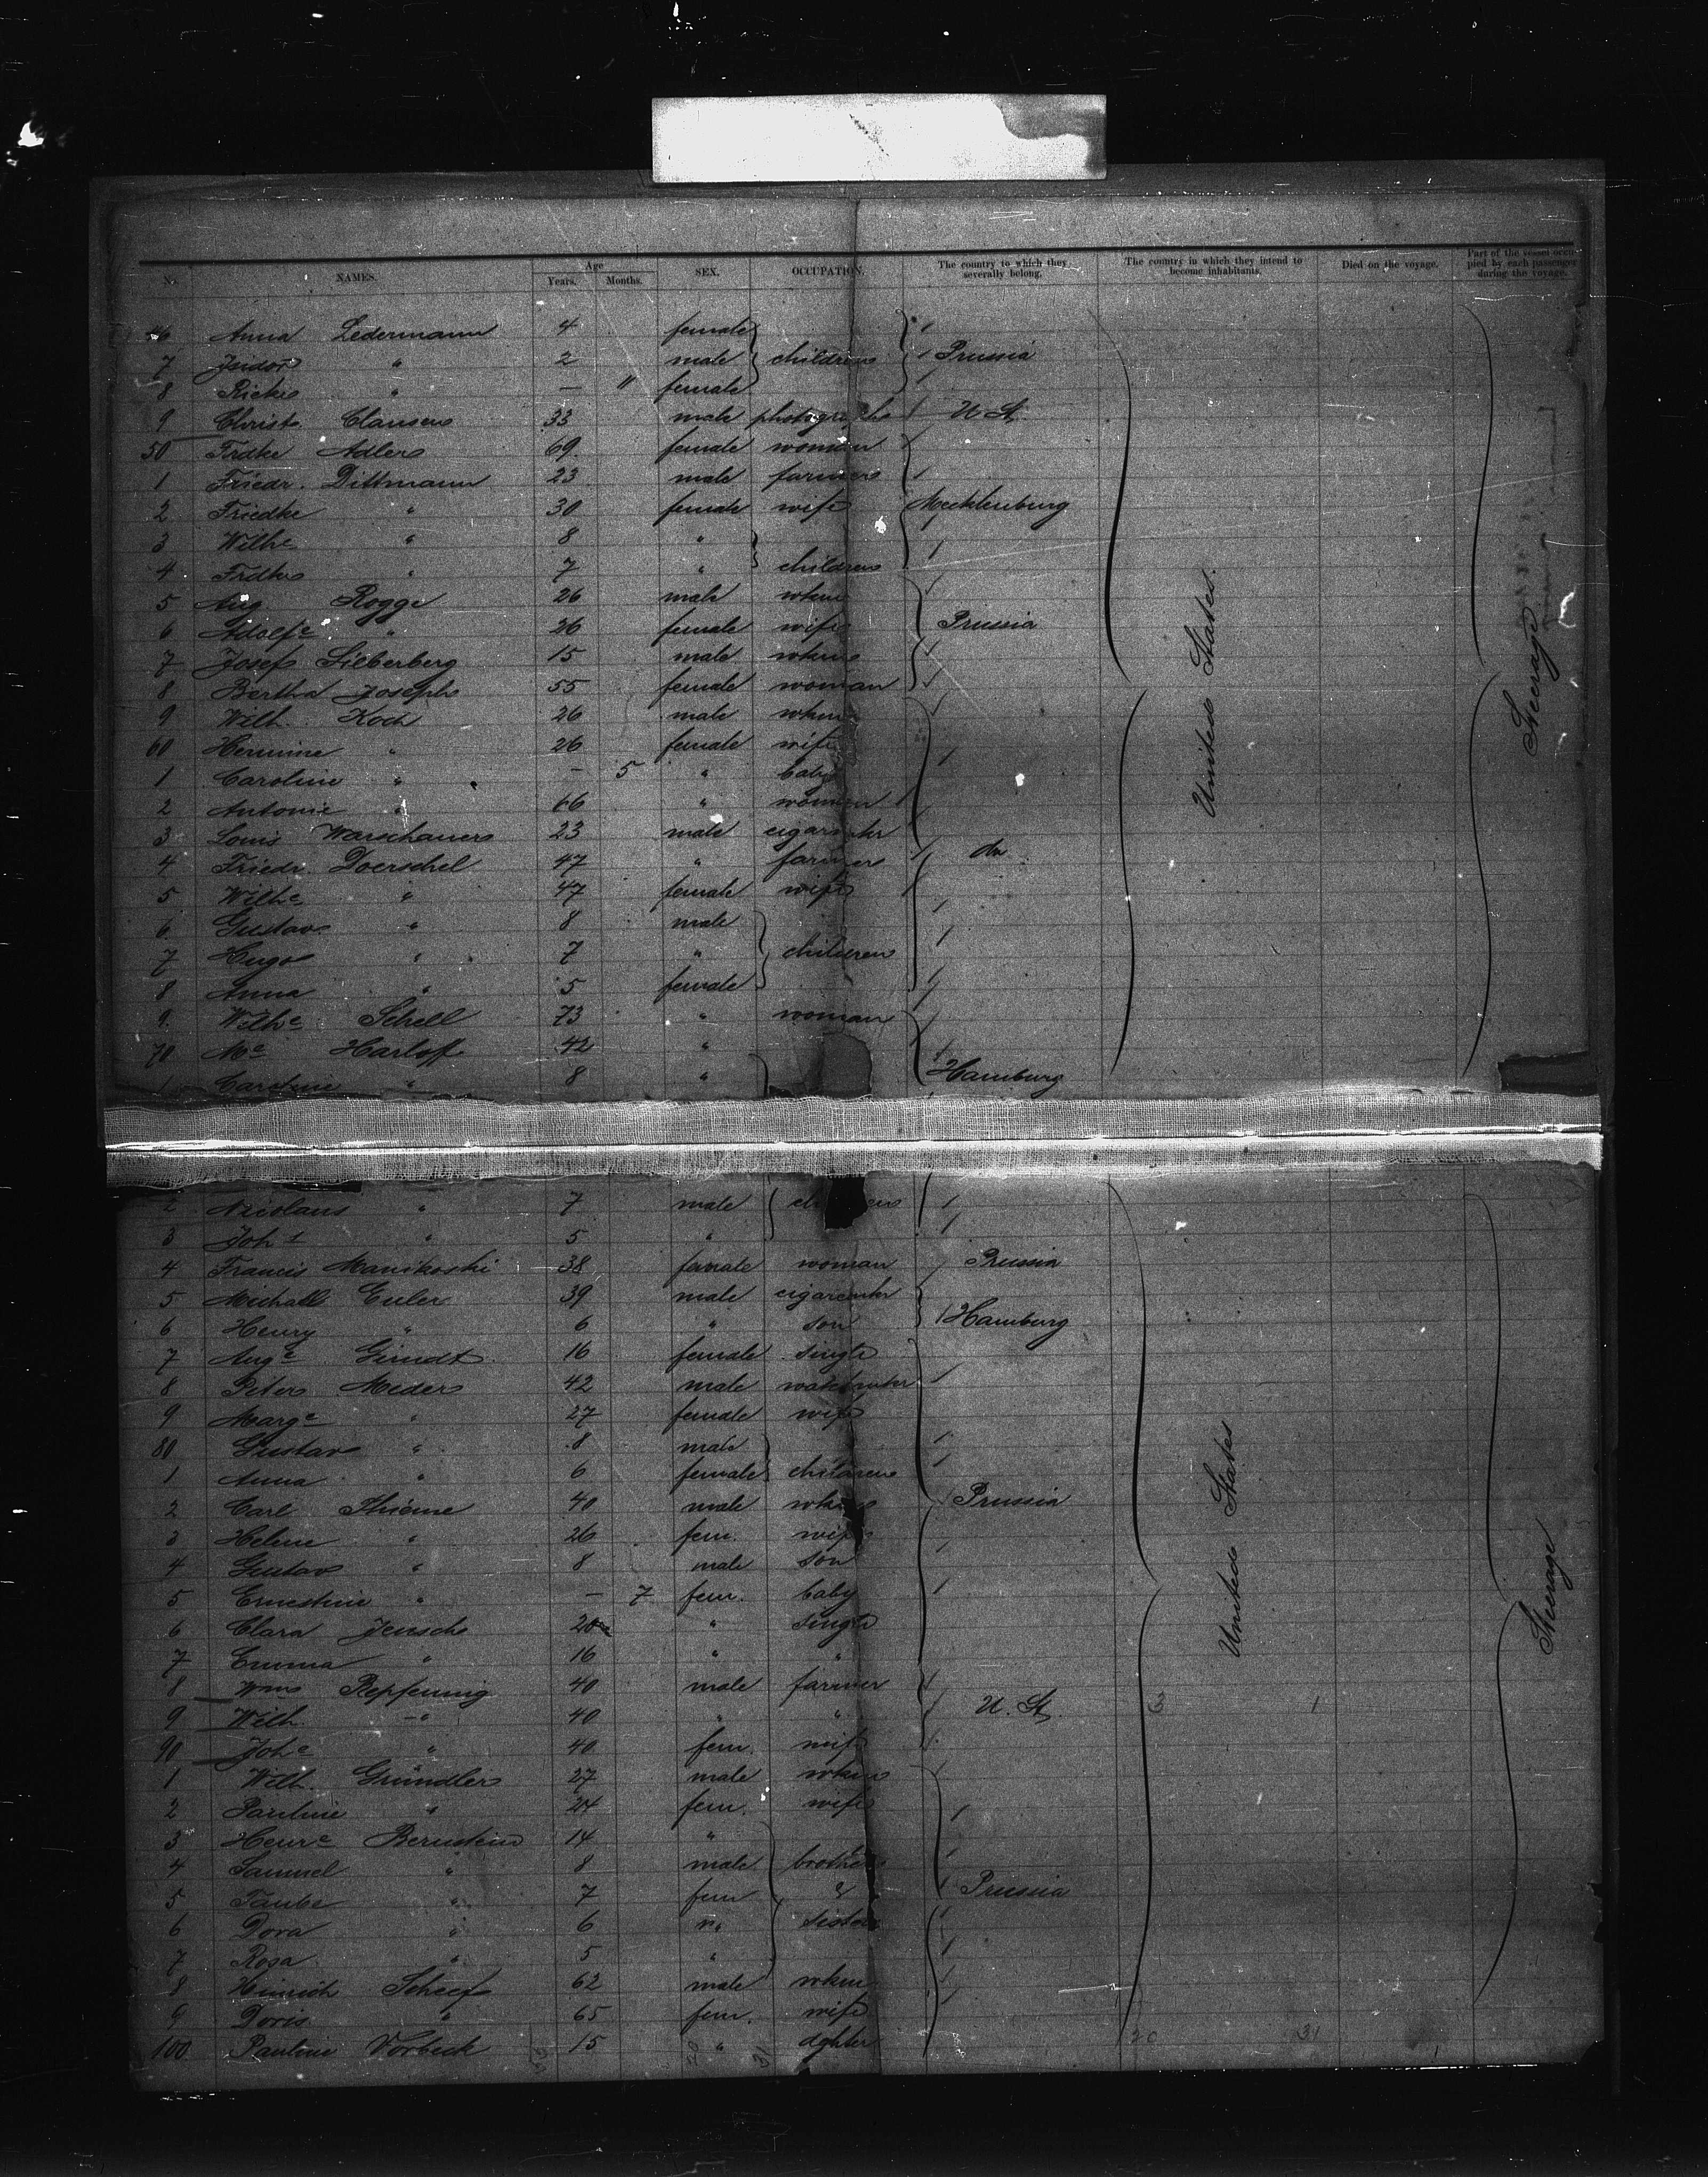 No. NAMES. Age Years. Months. SEX. OCCUPATION. The country to which they severally belong. The country in which they intend to become inhabitants. Died on the voyage. Part of the vessel occupied by each passenger during the voyage.
46 Anna Ledermann 4 female
7 Isidor " 2 male children Prussia
8 Ricke " — 11 female
9 Christ. Clausen 33 male U. St.
50 Frdke Adler 69. female woman
1 Friedr. Dittmann 23 male farmer
2 Friedke " 30 female wife Mecklenburg
3 Wilhe " 8 "
4 Frdke " 7 " children
5 Aug. Rogge 26 male wkm
6 Adolfe " 26 female wife Prussia
7 Josef Lieberberg 15 male wkm
8 Bertha Joseph 55 female woman
9 Wilh. Koch 26 male wkm
60 Hermine " 26 female wife
1 Caroline " — 5 " baby
2 Antonie " 66 " woman
3 Louis Warschauer 23 male cigarmkr
4 Friedr. Doerschel 47 " farmer do
5 Wilhe " 47 female wife
6 Gustav " 8 male
7 Hugo " 7 " children
8 Anna " 5 female
9 Wilhe Schell 73 " woman
70 Me Harloff 42 "
1 Caroline " 8 " Hamburg
United States.
Steerage
2 Nicolaus " 7 male
3 Joh " 5 "
4 Francis Manikoski 38 female woman Prussia
5 Michall Euler 39 male cigarmkr
6 Henry " 6 " son Hamburg
7 Auge Gindt 16 female single
8 Peter Meder 42 male
9 Marge " 27 female wife
80 Gustav " 8 male
1 Anna " 6 female children
2 Carl Thieme 40 male wkm Prussia
3 Helene " 26 fem. wife
4 Gustav " 8 male son
5 Ernestine " — 7 fem. baby
6 Clara Jensch 20 " single
7 Emma " 16 " "
8 Wm Repfennig 40 male farmer
9 Wilh. " 40 " " U. St. 3 1
90 Johe " 40 fem. wife
1 Wilh. Gründler 27 male wkm
2 Pauline " 24 fem. wife
3 Henre Bernstein 14 "
4 Samuel " 8 male brothers
5 Taube " 7 fem & Prussia
6 Dora " 6 " sisters
7 Rosa " 5 "
8 Hinrich Scheef 62 male wkm
9 Doris " 65 fem. wife
100 Pauline Vorbeck 15 " dghter 20 31
United States
Steerage